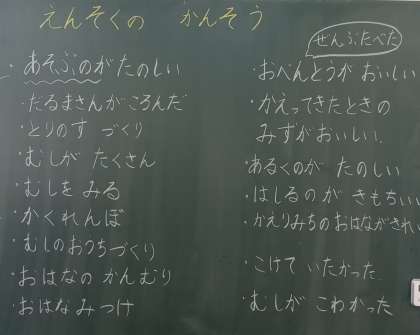 えんそくの かんそう
・あそぶのがたのしい
・だるまさんがころんだ
・とりのす づくり
・むしが たくさん
・むしを みる
・かくれんぼ
・むしのおうちづくり
・おはなの かんむり
・おはなみつけ
ぜんぶたべた
・おべんとうが おいしい
・かえってきたときの
みずがおいしい。
・あるくのが たのしい
・はしるのが きもちいい
・かえりみちのおはながきれい
・こけて いたかった
・むしが こわかった